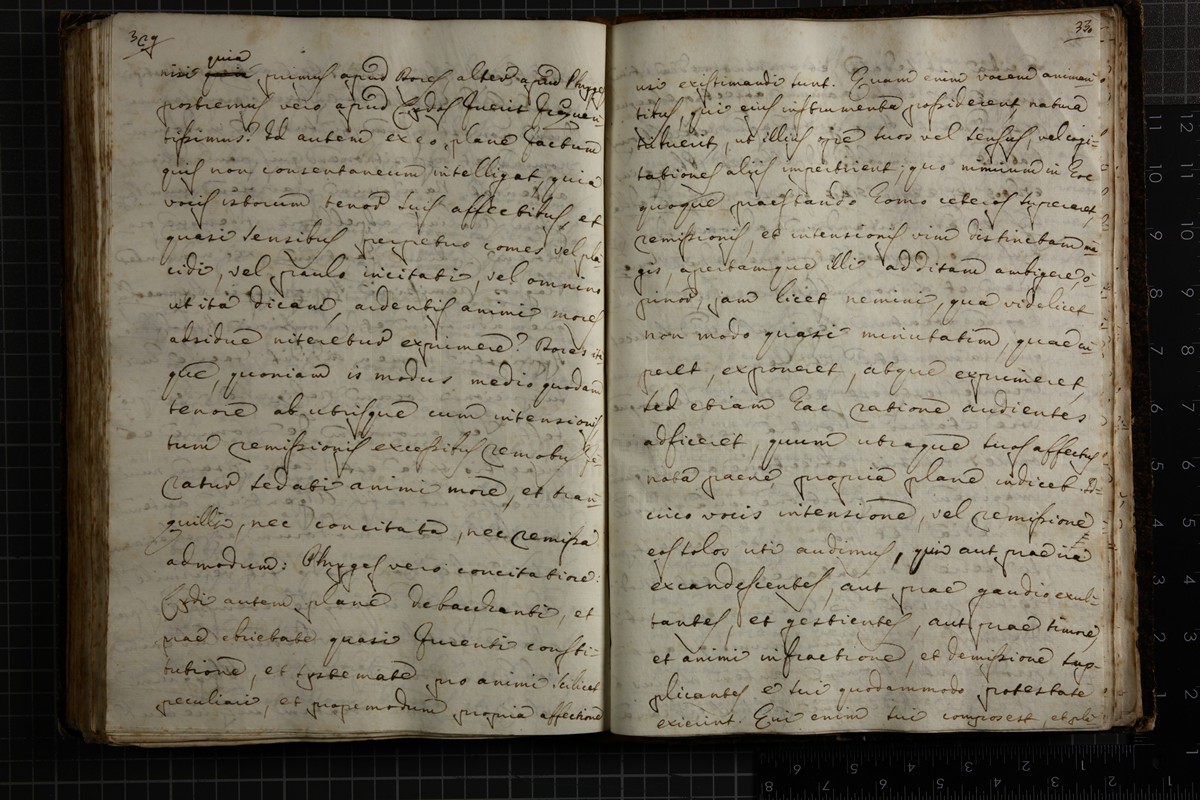 329
quia
nisi quia primus apud Dores, alter apud Phryges
postremus vero apud Lydos fuerit frequen-
tissimus? Id autem ex eo plane factum
quis non consentaneum intelligat, quia
vocis istorum tenor suis affectibus, et
quasi sensibus perpetuo comes vel pla-
cidi, vel paulo incitati, vel omnino
ut ita dicam, ardentis animi mores
adsidue niteretur exprimere? Dores iti-
que, quoniam is modus medio quodam
tenore ab utrisque cum intensionis
tum remissionis excessibus remotus
ratur sedati animi more, et tran-
quillo, nec concitata, nec remissa
admodum: Phryges vero concitatiore:
Lydi autem plane debacchanti, et
prae ebrietate quasi furenti consti-
tutione, et systemate pro animi scilicet
peculiari, et propemodum propria affectione
330
usi existimandi sunt. Quam enim vocem animan-
tibus, qui eius instrumenta possiderent natura
tribuerit, ut illius ope suos vel sensus, vel cogi-
tationes aliis impertirent; quo nimirum in hoc
quoque praestando homo ceteros superaret
remissionis, et intensionis vim distinctam ma-
gis, apertamque illi additam ambigere, o-
pinor, jam licet nemini, qua videlicet
non modo quasi minutatim, quae cu-
peret, exponeret, atque exprimeret,
sed etiam hac ratione audientes
adficeret, quum utraque suos affectus
nota paene propria plane indicet. Id-
circo vocis intensione, vel remissione
eos solos uti audimus, qui aut prae ira
excandescentes, aut prae gaudio exul-
tantes, et gestientes, aut prae timore,
et animi infractione, et demissione sup-
plicantes e sui quodammodo potestate
exierint. Qui enim sui compos est, et pla-